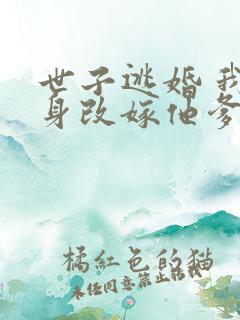 世子逃婚 我
身改嫁他爹
橘紅色的猫
未任同意禁止转载